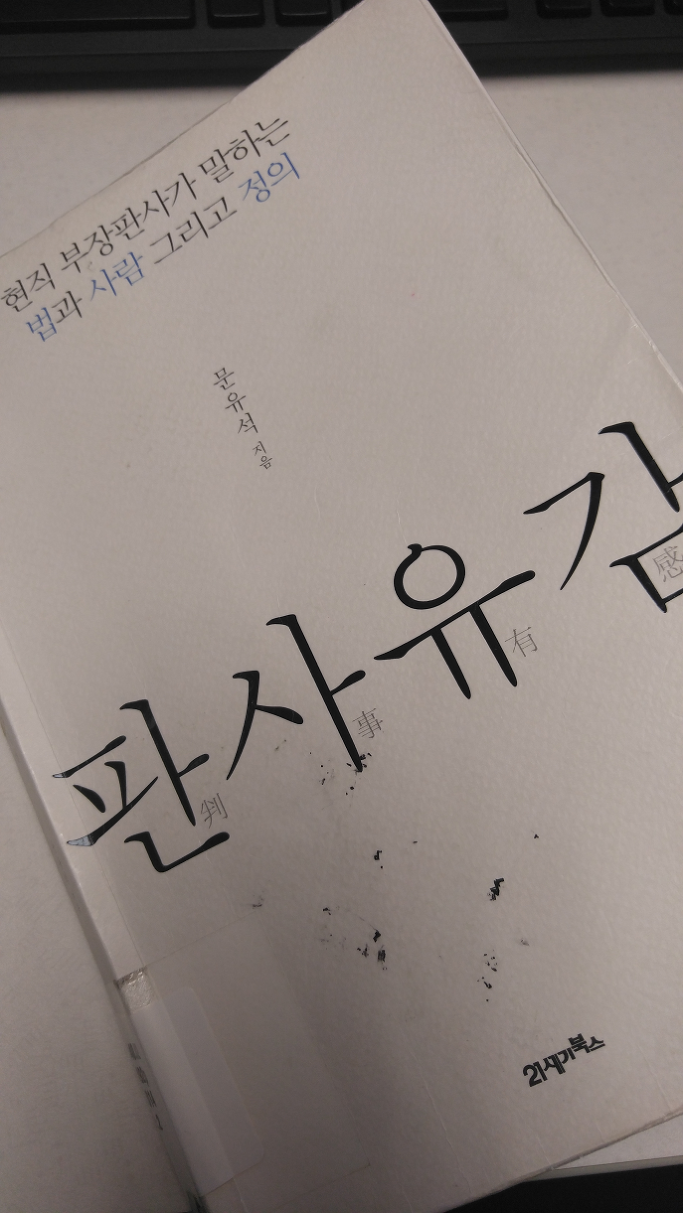 현직 부장판사가 말하는
법과 사람 그리고 정의
문유석 지음
판사유감
判事有感
21세기북스